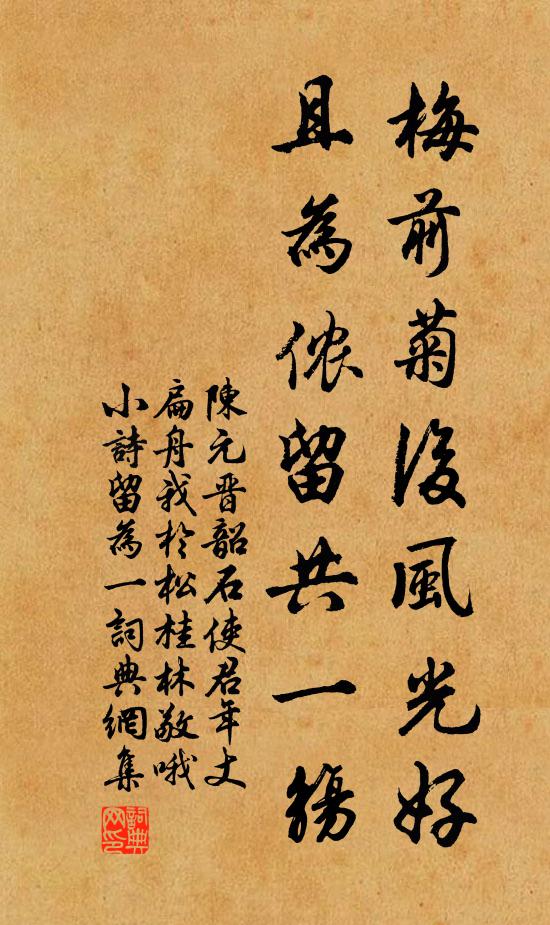 梅前菊後風光好
且為儂留共一觴
陳元晋韶石使君年丈
扁舟我於松桂林敬哦
小詩留為一詞典網集
詞典网印